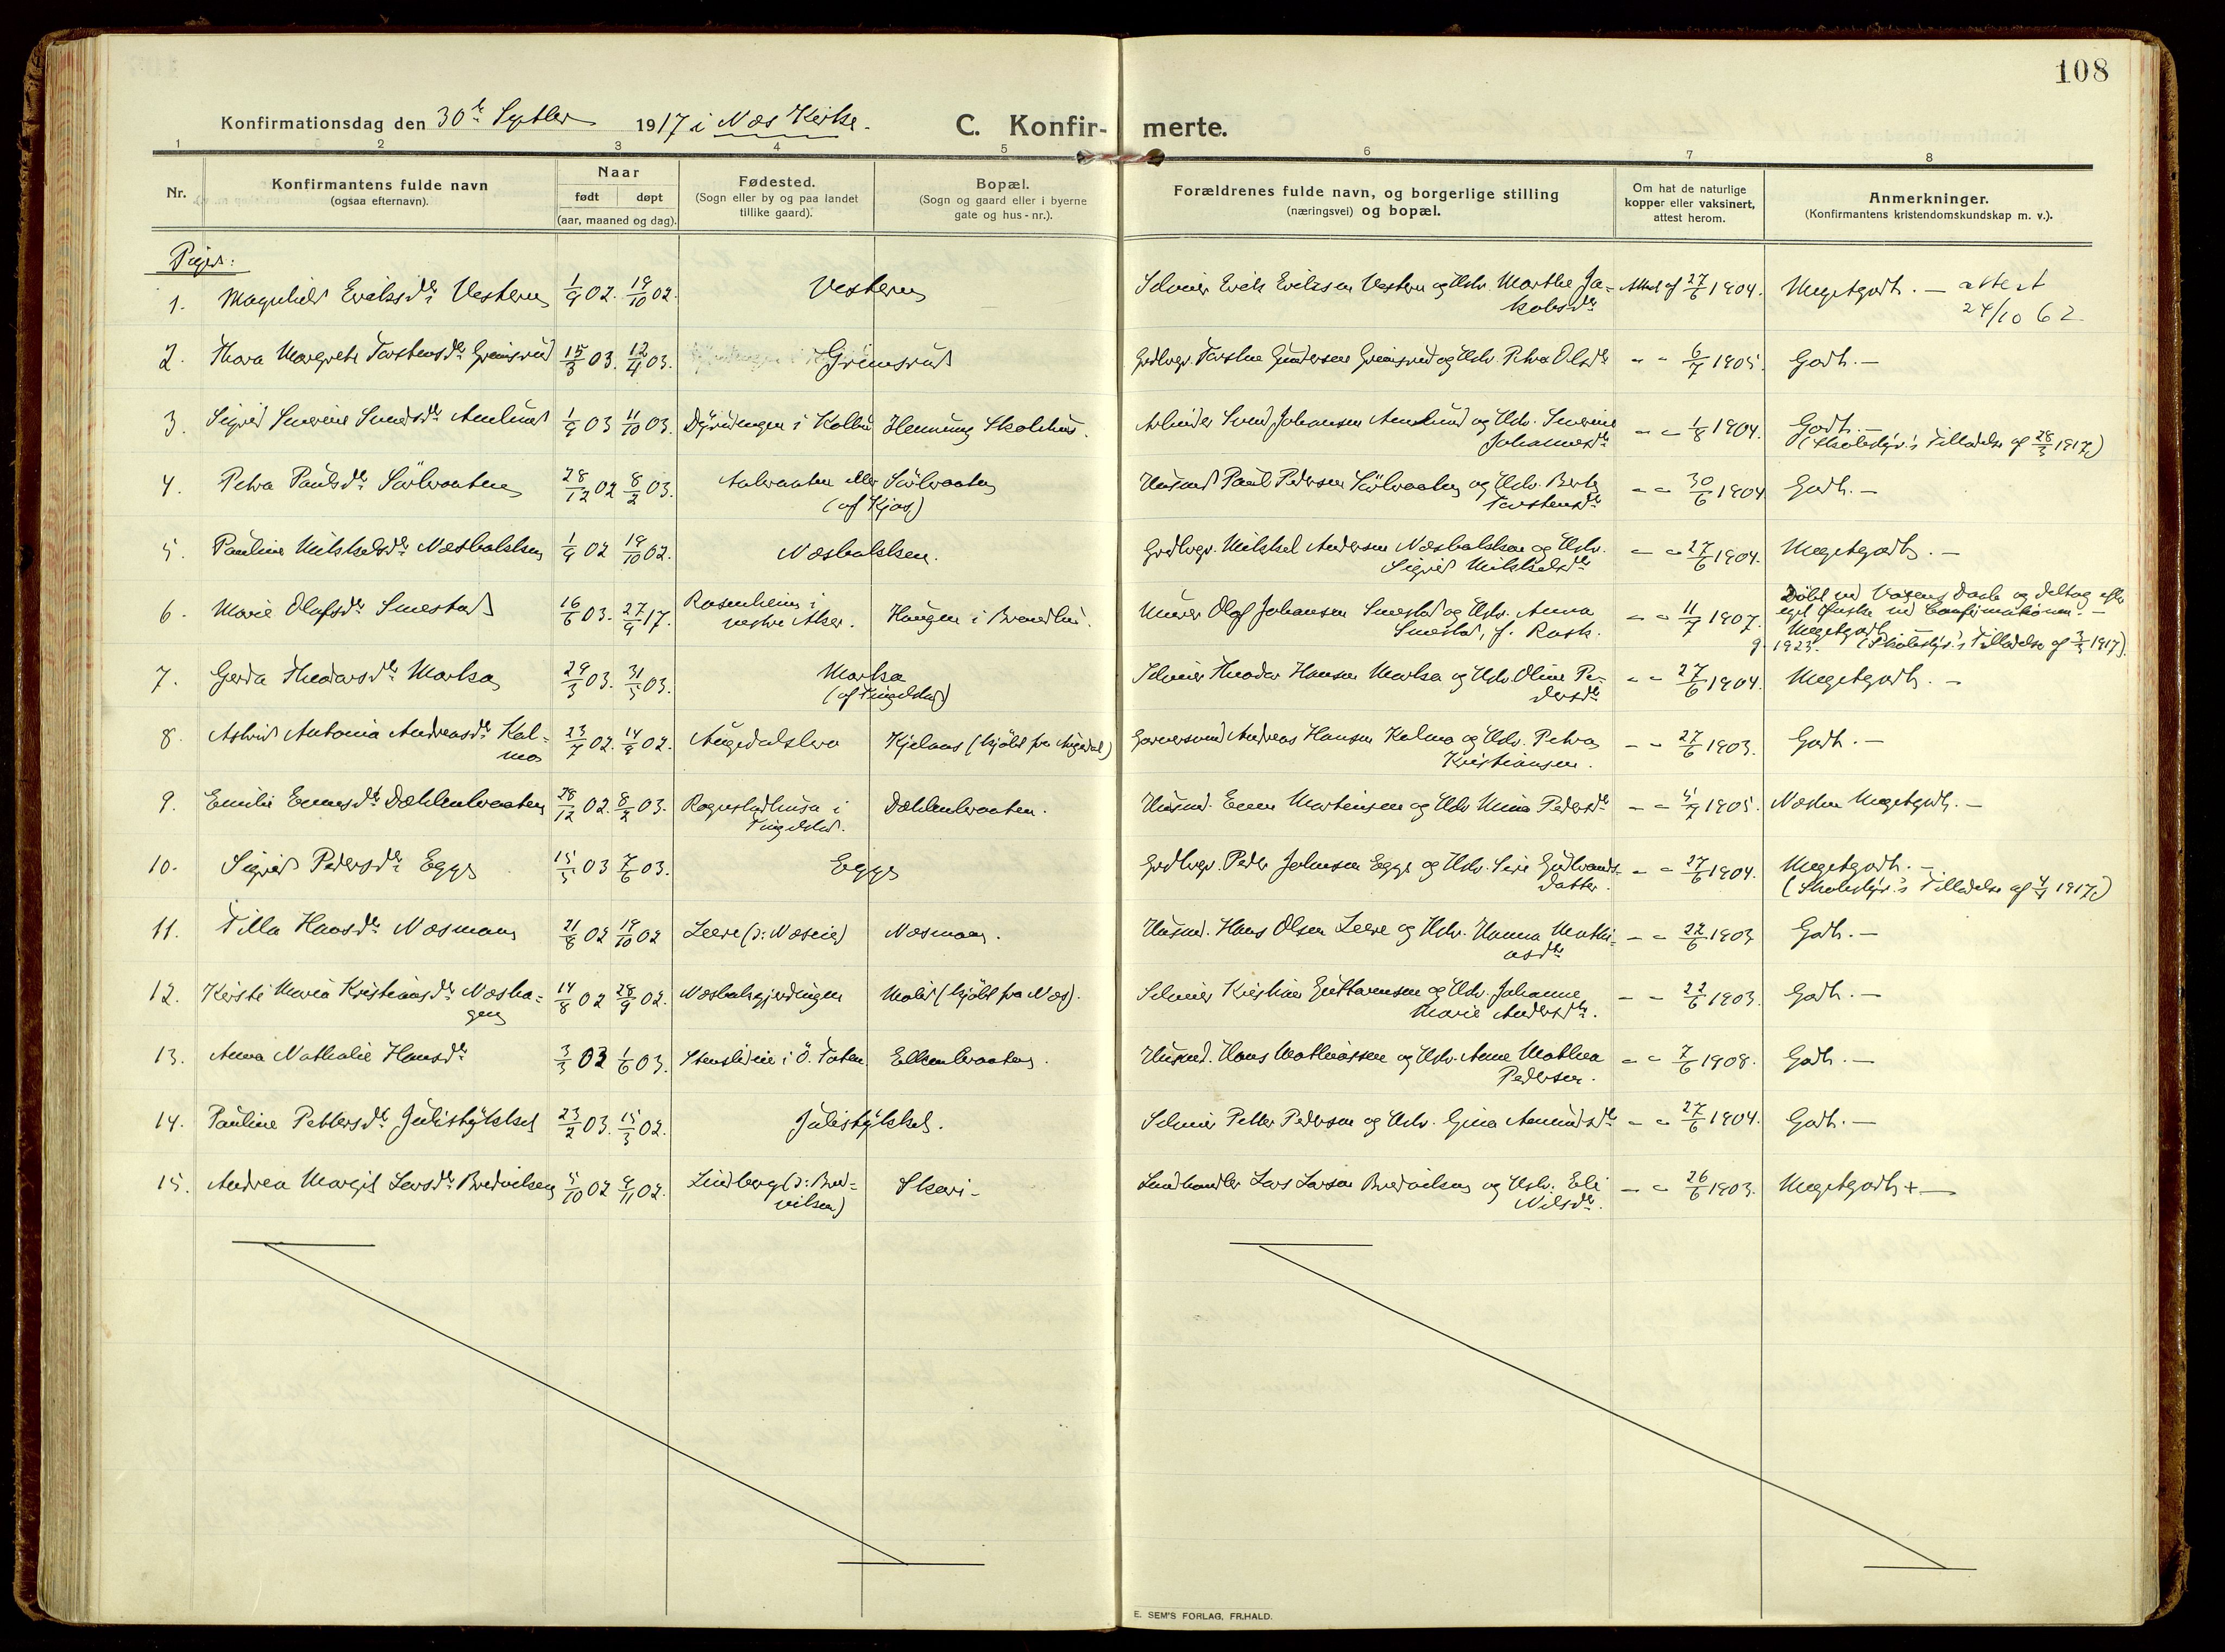 108
Konfirmationsdag den 30te Septber 1917 i Næs Kirke.
C. Konfirmerte.
1 2 3 4 5 6 7 8
Nr.
Konfirmantens fulde navn
(ogsaa efternavn).
Naar
født døpt
(aar, maaned og dag).
Fødested.
(Sogn eller by og paa landet
tillike gaard).
Bopæl.
(Sogn og gaard eller i byerne
gate og hus-nr.).
Forældrenes fulde navn, og borgerlige stilling
(næringsvei) og bopæl.
Om hat de naturlige
kopper eller vaksinert,
attest herom.
Anmerkninger.
(Konfirmantens kristendomskundskap m. v.).
Piger:
1. Magnhild Eriksdtr Vestern 1/9 02. 19/10 02. Vestern Erik Eriksen Vestern og Hstr. Marthe Ja-
kobsdtr Attest af 27/6 1904. Megetgodt. — attest
24/10 62
2. Thora Margrete Torstensdtr Grimsrud 15/3 03. 12/4 03. Grimsrud Grdbrgr. Torsten Gundersen Grimsrud og Hstr. Petra Olsdtr " " 6/7 1905. Godt. —
3. Sigrid Severine Svendsdtr Amlund 1/9 03 11/10 03. i Kolbu Henning Skolehus. Arbeider Svend Johansen Amlund og Hstr. Severine
Johannesdtr " " 1/8 1904. Godt. —
(Skolestyr.'s Tilladelse af 28/3 1917.)
4. Petra Paulsdtr Sørbraaten 28/12 02 8/2 03. eller Sørbraaten
(af Kjos) Husmd Paul Pedersen Sørbraaten og Hstr. Berte
Torstensdtr " " 30/6 1904 Godt. —
5. Pauline Mikkelsdtr Næsbakken 1/9 02 19/10 02. Næsbakken. Grdbrgr. Mikkel Andersen Næsbakken og Hstr.
Sigrid Mikkelsdtr " " 27/6 1904. Megetgodt. —
6. Marie Olafsdtr Smestad 16/6 03. 27/9 17. Rosenheim i
vestre Aker. Haugen i Brandbu. Murer Olaf Johansen Smestad og Hstr. Anna
Smestad, f. Rask. " " 11/7 1907. Døbt ved Voxens Daab og deltog efter
eget Ønske ved Confirmationen. —
Megetgodt —
g. 1923. (Skolestyr.'s Tilladelse af 3/3 1917).
7. Gerda Theodorsdtr Morka 29/3 03. 31/5 03. Morka
(af Tingelstad) Theodor Hansen Morka og Hstr. Oline Pe-
dersdtr " " 27/6 1904. Megetgodt. —
8. Astrid Antonia Andreasdtr Kal-
mo 23/7 02. 14/9 02. Augedalsbro Kjelaas (kjøbt fra Augedal) Garversvend Andreas Hansen Kalmo og Hstr. Petra
Kristiansen. " " 27/6 1903. Godt. —
9. Emilie Evensdtr Dæhlenbraaten 28/12 02. 8/2 03. Rognstadhusa i
Tingelstad. Dæhlenbraaten. Husmd. Even Martinsen og Hstr. Mina Pedersdtr " " 5/7 1905. Næsten Megetgodt. —
10. Sigrid Pedersdtr Egge 15/5 03 7/6 03. Egge Grdbrgr. Peder Johnsen Egge og Hstr. Siri Gudbrands-
datter. " " 27/6 1904. Megetgodt. —
(Skolestyr.'s Tilladelse af 4/4 1917.)
11. Tilla Hansdtr Næsmoen 21/8 02 19/10 02 Leere (ɔ: Næseie) Næsmoen. Husmd. Hans Olsen Leere og Hstr. Hanna Mathi-
asdtr " " 22/6 1903 Godt. —
12. Kirsti Maria Kristiansdtr Næsha-
gen 14/8 02 28/9 02. Næsbakgjerdingen Molid (kjøbt fra Næs). Kristian Gustavensen og Hstr. Johanne
Marie Andersdtr. " " 22/6 1903. Godt. —
13. Anna Nathalie Hansdtr 3/3 03 1/6 03. Stenslieie i Ø. Toten Elkenbraaten. Husmd. Hans Mathiassen og Hstr. Anne Mathea
Pedersen. " " 7/6 1908. Godt. —
14. Pauline Pettersdtr Julistykket 23/2 03. 15/3 02. Julistykket. Petter Pedersen og Hstr. Gina Amundsdtr " " 27/6 1904. Godt. —
15. Andrea Margit Larsdtr Bredviken 5/10 02 9/11 02. Lindberg (ɔ: Bred-
viken) Skari- Landhandler Lars Larsen Bredviken og Hstr. Eli
Nilsdtr. " " 26/6 1903. Megetgodt + —
E. SEM'S FORLAG, FR.HALD.